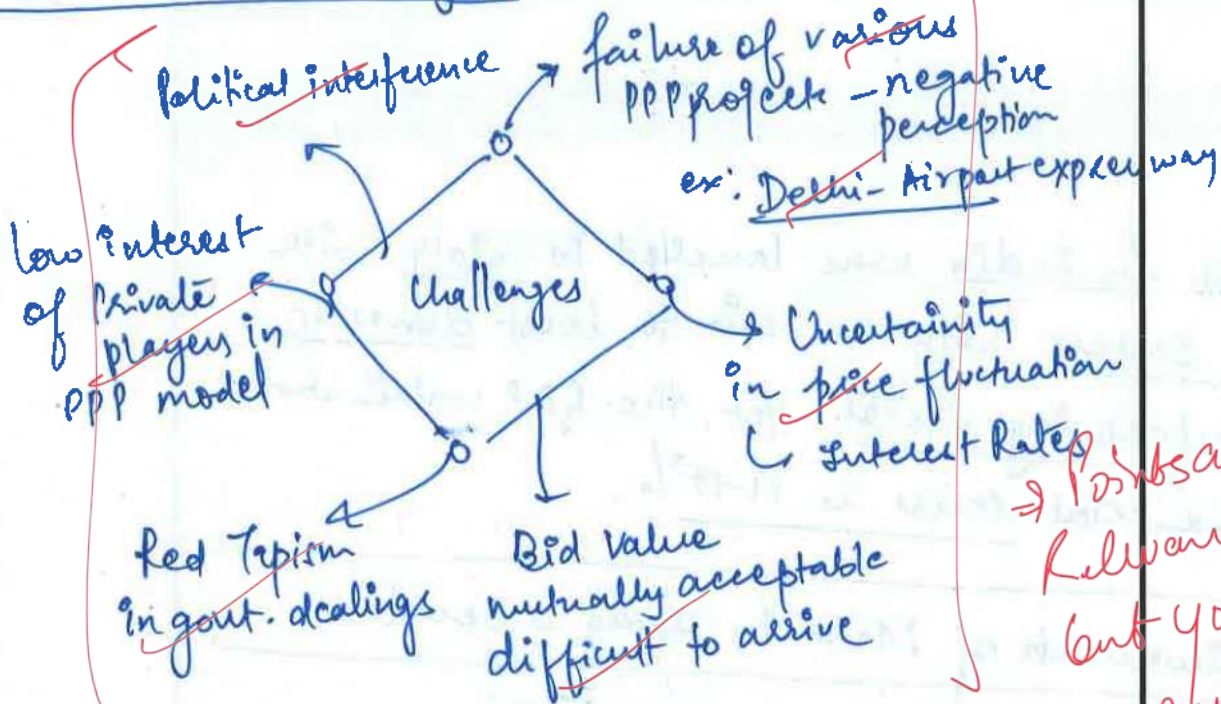 Political interference
failure of various
PPP projects - negative
perception
ex: Delhi - Airport express way
low interest
of Private
players in
PPP model
Challenges
Uncertainity
in price fluctuation
Interest Rates
Red Tapism
in govt. dealings
Bid value
mutually acceptable
difficult to arrive
=> Points a
Relevan
but yo